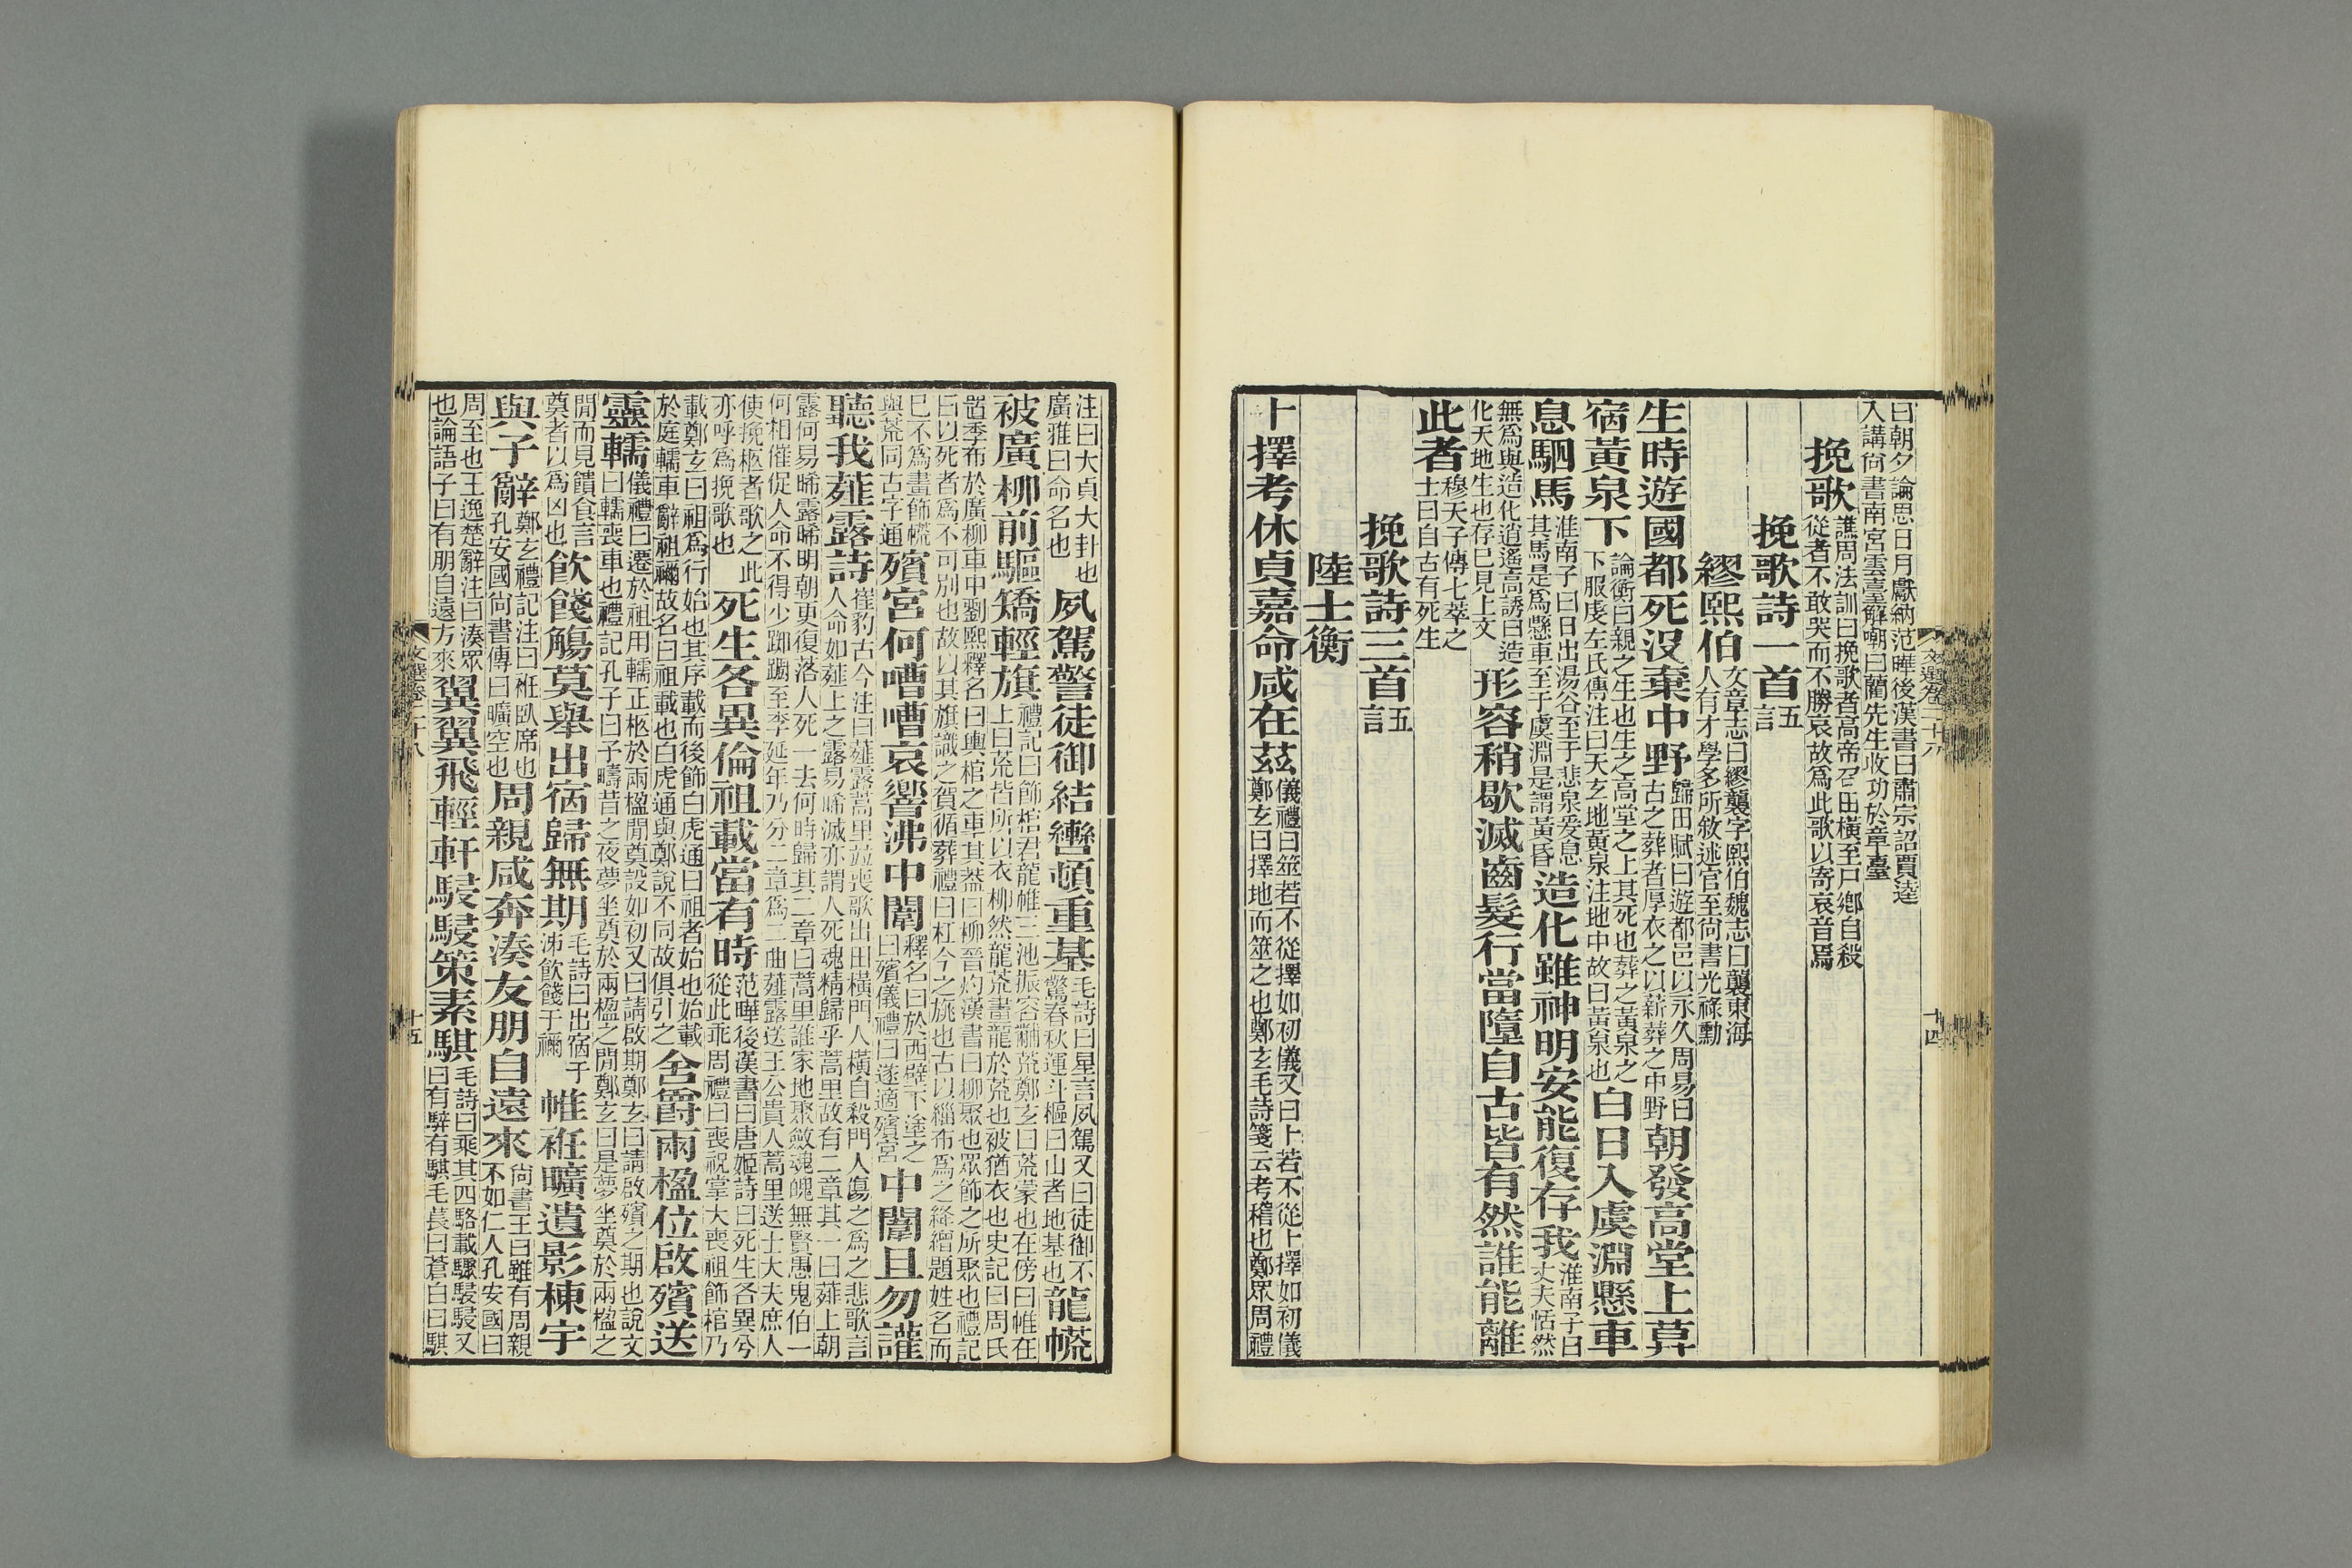 曰朝夕論思日月獻納范曄後漢書曰肅宗詔賈逵入講尙書南宮雲臺解嘲曰藺先生收功於章臺
挽歌譙周法訓曰挽歌者高帝召田橫至尸鄕自殺從者不敢哭而不勝哀故爲此歌以寄哀音焉
挽歌詩一首五言
繆熙伯文章志曰繆襲字熙伯魏志曰襲東海人有才學多所敘述官至尙書光祿勳
生時遊國都死沒棄中野歸田賦曰遊都邑以永久周易曰古之葬者厚衣之以薪葬之中野朝發高堂上暮
宿黃泉下論衡曰親之生也生之高堂之上其死也葬之黃泉之下服虔左氏傳注曰天玄地黃泉注地中故曰黃泉也白日入虞淵懸車
息駟馬淮南子曰日出湯谷至于悲泉爰息其馬是爲懸車至于虞淵是謂黃昏造化雖神明安能復存我淮南子曰丈夫恬然
無爲與造化逍遙高誘曰造化天地生也存已見上文形容稍歇滅齒髮行當墮自古皆有然誰能離
此者穆天子傳七萃之士曰自古有死生
挽歌詩三首五言
陸士衡
卜擇考休貞嘉命咸在茲儀禮曰筮若不從擇如初儀又曰卜若不從卜擇如初儀鄭玄曰擇地而筮之也鄭玄毛詩箋云考稽也鄭眾周禮
文選卷二十八
十四
注曰大貞大卦也廣雅曰命名也夙駕警徒御結轡頓重基毛詩曰星言夙駕又曰徒御不驚春秋運斗樞曰山者地基也龍㡆
被廣柳前驅矯輕旗禮記曰飾棺君龍帷三池振容黼荒鄭玄曰荒蒙也在傍曰帷在上曰荒皆所以衣柳然龍荒畫龍於荒也被猶衣也史記曰周氏
置季布於廣柳車中劉熙釋名曰輿棺之車其葢曰柳晉灼漢書曰柳聚也眾飾之所聚也禮記曰以死者爲不可別也故以其旗識之賀循葬禮曰杠今之旐也古以緇布爲之絳繒題姓名而
已不爲畫飾㡆與荒同古字通殯宮何嘈嘈哀響沸中闈釋名曰於西壁下塗之曰殯儀禮曰遂適殯宮中闈且勿讙
聽我薤露詩崔豹古今注曰薤露蒿里並喪歌出田橫門人橫自殺門人傷之爲之悲歌言人命如薤上之露易晞滅亦謂人死魂精歸乎蒿里故有二章其一曰薤上朝
露何易晞露晞明朝更復落人死一去何時歸其二章曰蒿里誰家地聚斂魂魄無賢愚鬼伯一何相催促人命不得少踟躕至李延年乃分二章爲二曲薤露送王公貴人蒿里送士大夫庶人
使挽柩者歌之此亦呼爲挽歌也死生各異倫祖載當有時范曄後漢書曰唐姬詩曰死生各異兮從此乖周禮曰喪祝掌大喪祖飾棺乃
載鄭玄曰祖爲行始也其序載而後飾白虎通曰祖者始也始載於庭輀車辭祖禰故名曰祖載也白虎通與鄭說不同故俱引之舍爵兩楹位啟殯送
靈輀儀禮曰遷於祖用輀正柩於兩楹閒奠設如初又曰請啟期鄭玄曰請啟殯之期也說文曰輀喪車也禮記孔子曰予疇昔之夜夢坐奠於兩楹之閒鄭玄曰是夢坐奠於兩楹之
閒而見饋食言奠者以爲凶也飮餞觴莫舉出宿歸無期毛詩曰出宿于泲飮餞于禰帷衽曠遺影棟宇
與子辭鄭玄禮記注曰衽臥席也孔安國尙書傳曰曠空也周親咸奔湊友朋自遠來尙書王曰雖有周親不如仁人孔安國曰
周至也王逸楚辭注曰湊眾也論語子曰有朋自遠方來翼翼飛輕軒駸駸策素騏毛詩曰乘其四駱載驟駸駸又曰有騂有騏毛萇曰蒼白曰騏
文選卷二十八
十五